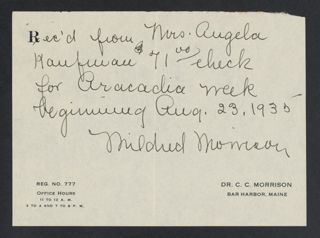 Rec'd from Mrs. Angela
Kaufman $71 00 check
for Aracadia week
beginning Aug. 23, 1935
Mildred Morrison
REG. NO. 777
OFFICE HOURS
11 TO 12 A. M.
2 TO 4 AND 7 TO 8 P. M.
DR. C. C. MORRISON
BAR HARBOR, MAINE